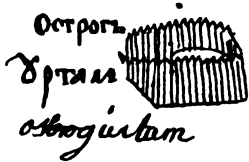 Острогъ
Уртам
ostrog iurtam